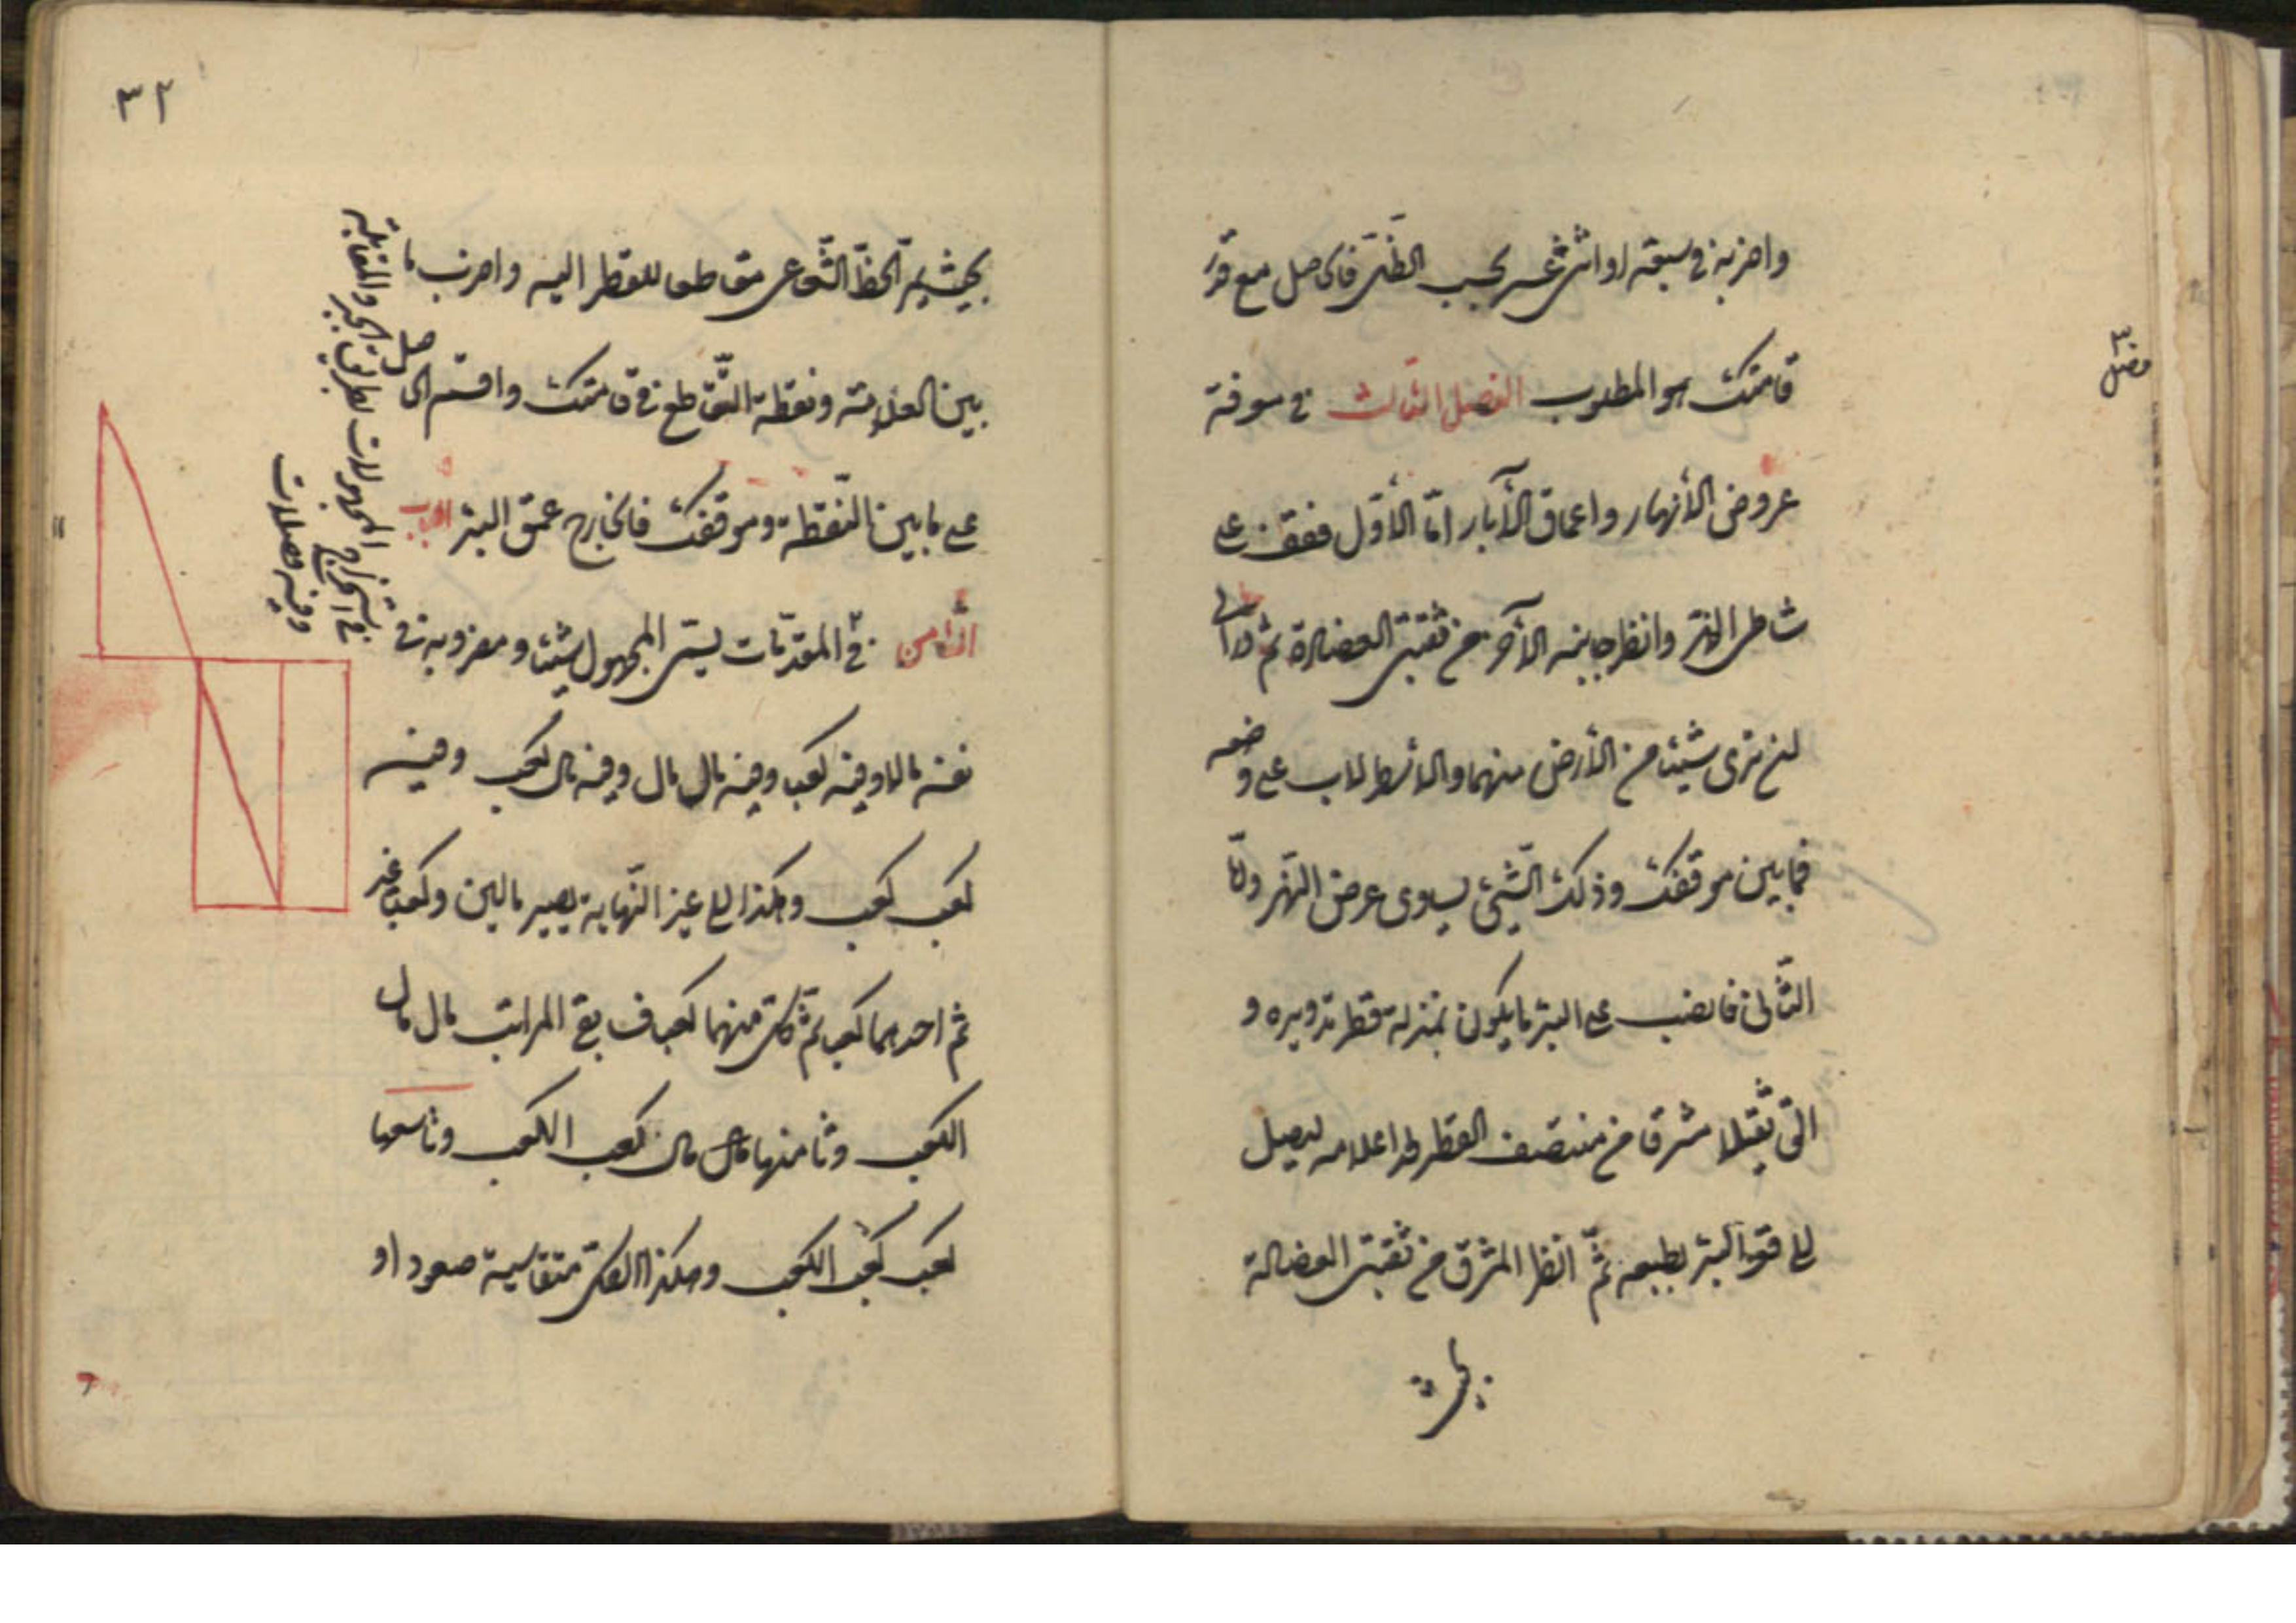 واضربه في سبعة او اثنى عشر بحسب الظل فالحاصل مع قدر
قامتك هو المطلوب الفصل الثالث في معرفة
عروض الأنهار واعماق الآبار امّا الأوّل فقف على
شاطى النهر وانظر جانبه الآخر من ثقبتى العضادة ثم در الى
ان ترى شيئا من الأرض منهما والاسطرلاب على وضعه
فما بين موقفك وذلك الشّئ يساوى عرض النهر وامّا
الثّانى فانصب على البئر ما يكون بمنزلة قطر تدويره و
الق ثقيلا مشرقا من منتصف القطر بعد اعلامه ليصل
الى قعر البئر بطبعه ثمّ انظر المشرق من ثقبتى العضادة
بحيث
فصل
٣٢
بحيث يمرّ الخطّ الشّعاعى مقاطعا للقطر اليه واضرب ما
بين العلامة ونقطة التّقاطع في قامتك واقسم الحاصل
على ما بين النّقطة وموقفك فالخارج عمق البئر الباب
الثّامن في المقدّمات يسمّى المجهول شيئا ومضروبه في
نفسه مالا وفيه كعبا وفيه مال مال وفيه مال كعب وفيه
كعب كعب وهكذا الى غير النّهاية يصير مالين وكعبا
ثم احدهما كعب ثمّ كل منهما كعبا فسابع المراتب مال مال
الكعب وثامنها مال كعب الكعب وتاسعها
كعب كعب الكعب وهكذا والكل متناسبة صعودا و
في استخراج المجهولات بطريق الجبر والمقابلة
وفيه فصلان